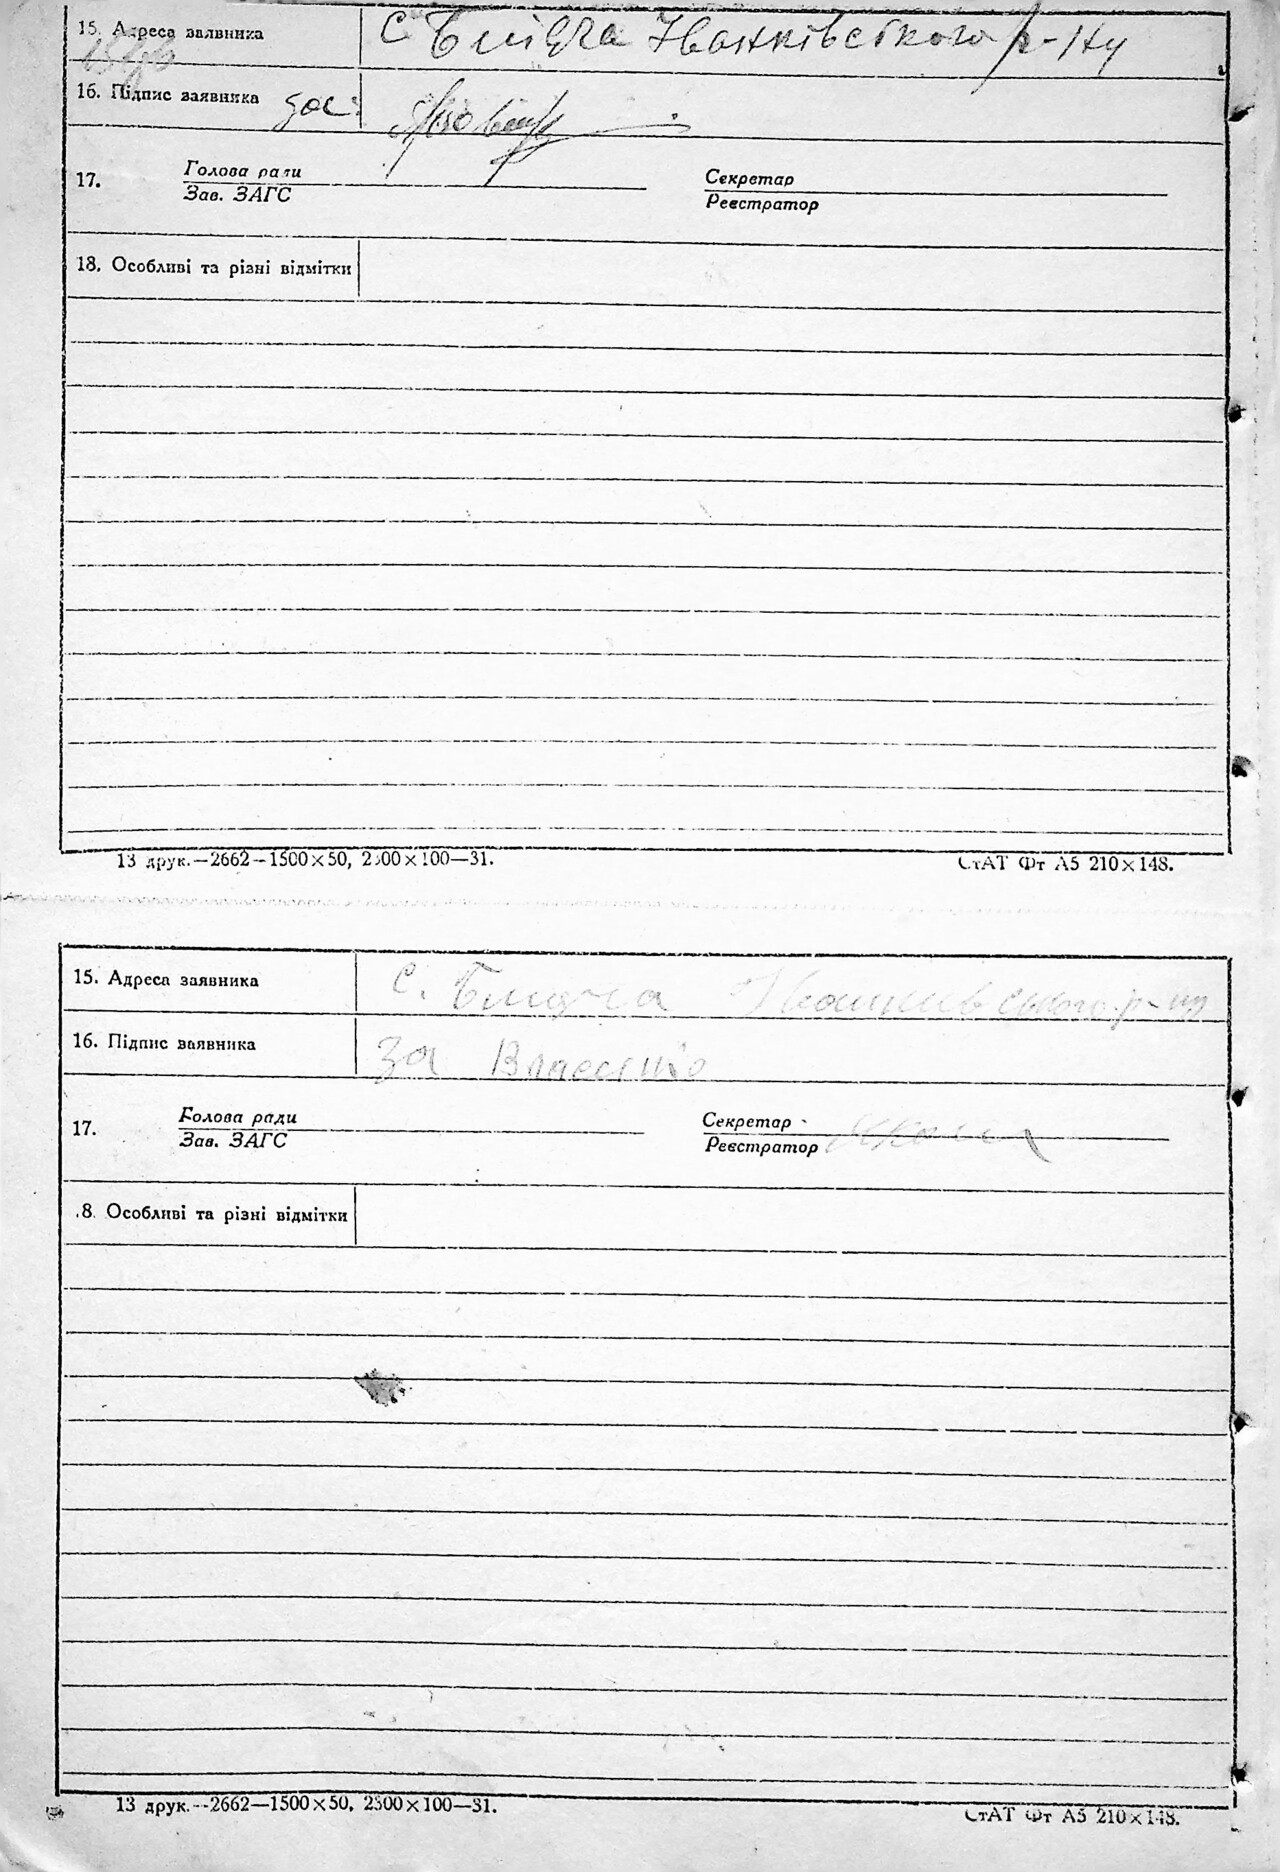 15. Адреса заявника с Блідча Іванківського р-ну
16. Підпис заявника за
17. Голова ради Секретар
Зав. ЗАГС Реєстратор
18. Особливі та різні відмітки
13 друк.—2662—1500×50, 2300×100—31.
СтАТ Фт А5 210×148.
15. Адреса заявника с. Блидча Іванківського р-ну
16. Підпис заявника за
17. Голова ради Секретар
Зав. ЗАГС Реєстратор
18. Особливі та різні відмітки
13 друк.—2662—1500×50, 2300×100—31.
СтАТ Фт А5 210×148.